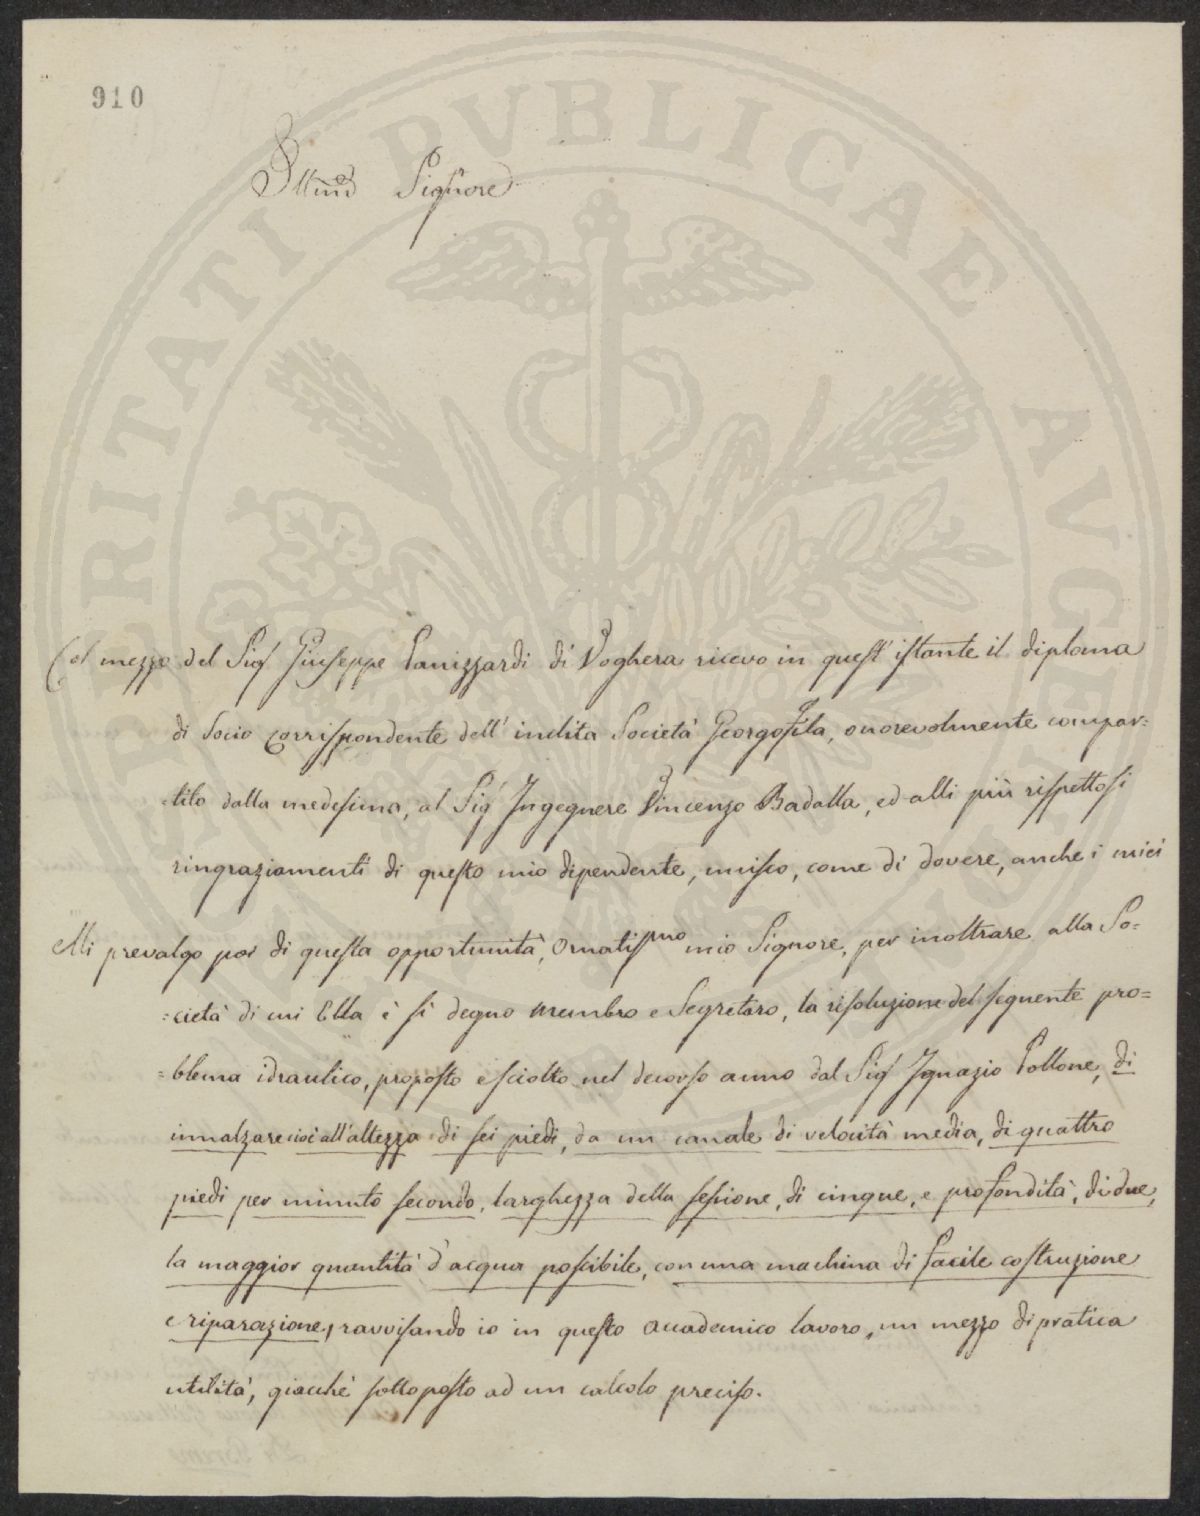 910
PROSPERITATI PVBLICAE AVGENDAE
Illmo Signore
Col mezzo del Sig Giuseppe Panizzardi di Voghera ricevo in quest' istante il diploma
di Socio Corrispondente dell' inclita Società Georgofila, onorevolmente compar=
=tito dalla medesima, al Sig Ingegnere Vincenzo Badalla, ed alli più rispettosi
ringraziamenti di questo mio dipendente, unisco, come di dovere, anche i miei
Mi prevalgo poi di questa opportunità, Ornatissmo mio Signore, per inoltrare alla So=
=cietà di cui Ella è sì degno membro e Segretaro, la risoluzione del seguente pro=
=blema idraulico, proposto e sciolto nel decorso anno dal Sig Ignazio Pollone, di
innalzare cioè all'altezza di sei piedi, da un canale di velocità media, di quattro
piedi per minuto secondo, larghezza della sessione, di cinque, e profondità, di due,
la maggior quantità d'acqua possibile, con una machina di facile costruzione
e riparazione, ravvisando io in questo accademico lavoro, un mezzo di pratica
utilità, giacchè sottoposto ad un calcolo preciso.